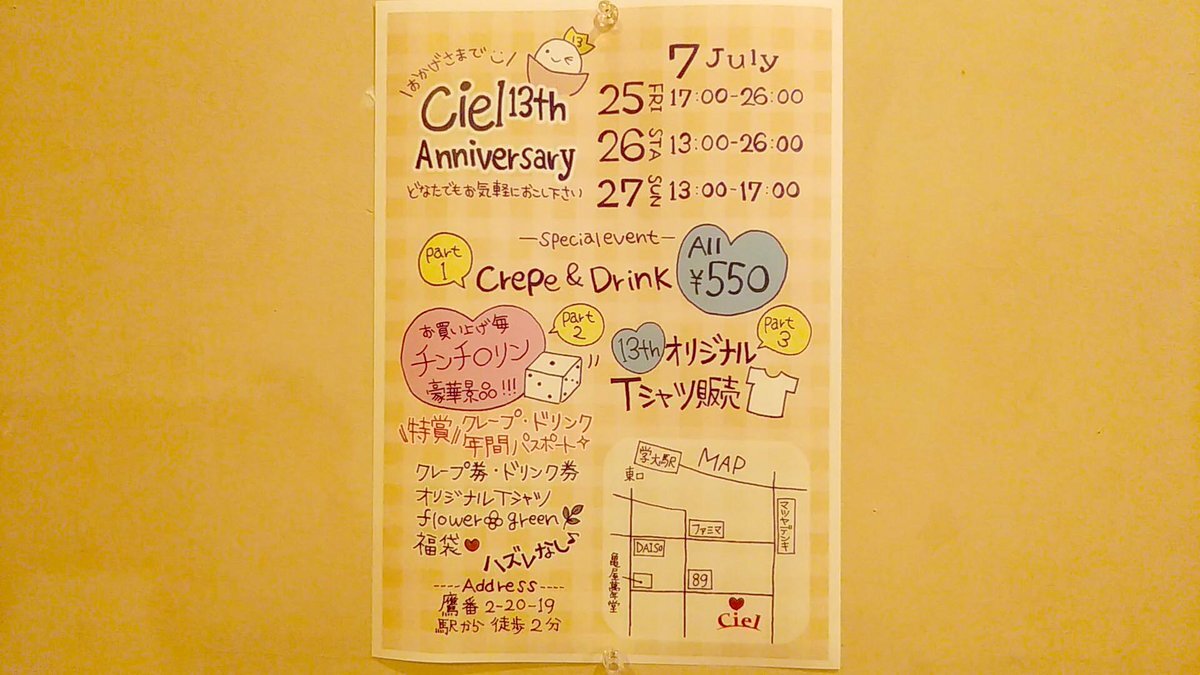 \おかげさまで/
13
Ciel 13th
Anniversary
どなたでもお気軽におこし下さい
7 July
25 FRI 17:00-26:00
26 STA 13:00-26:00
27 SUN 13:00-17:00
—Special event—
part 1
Crepe & Drink
All ¥550
part 2
お買い上げ毎
チンチ〇リン
豪華景品!!!
part 3
13th オリジナル
Tシャツ販売
\\特賞// クレープ・ドリンク
年間パスポート
クレープ券・ドリンク券
オリジナルTシャツ
flower green
福袋
ハズレなし♪
----Address----
鷹番 2-20-19
駅から 徒歩2分
MAP
学大駅
東口
マツヤデンキ
ファミマ
DAISO
亀屋萬年堂
89
Ciel